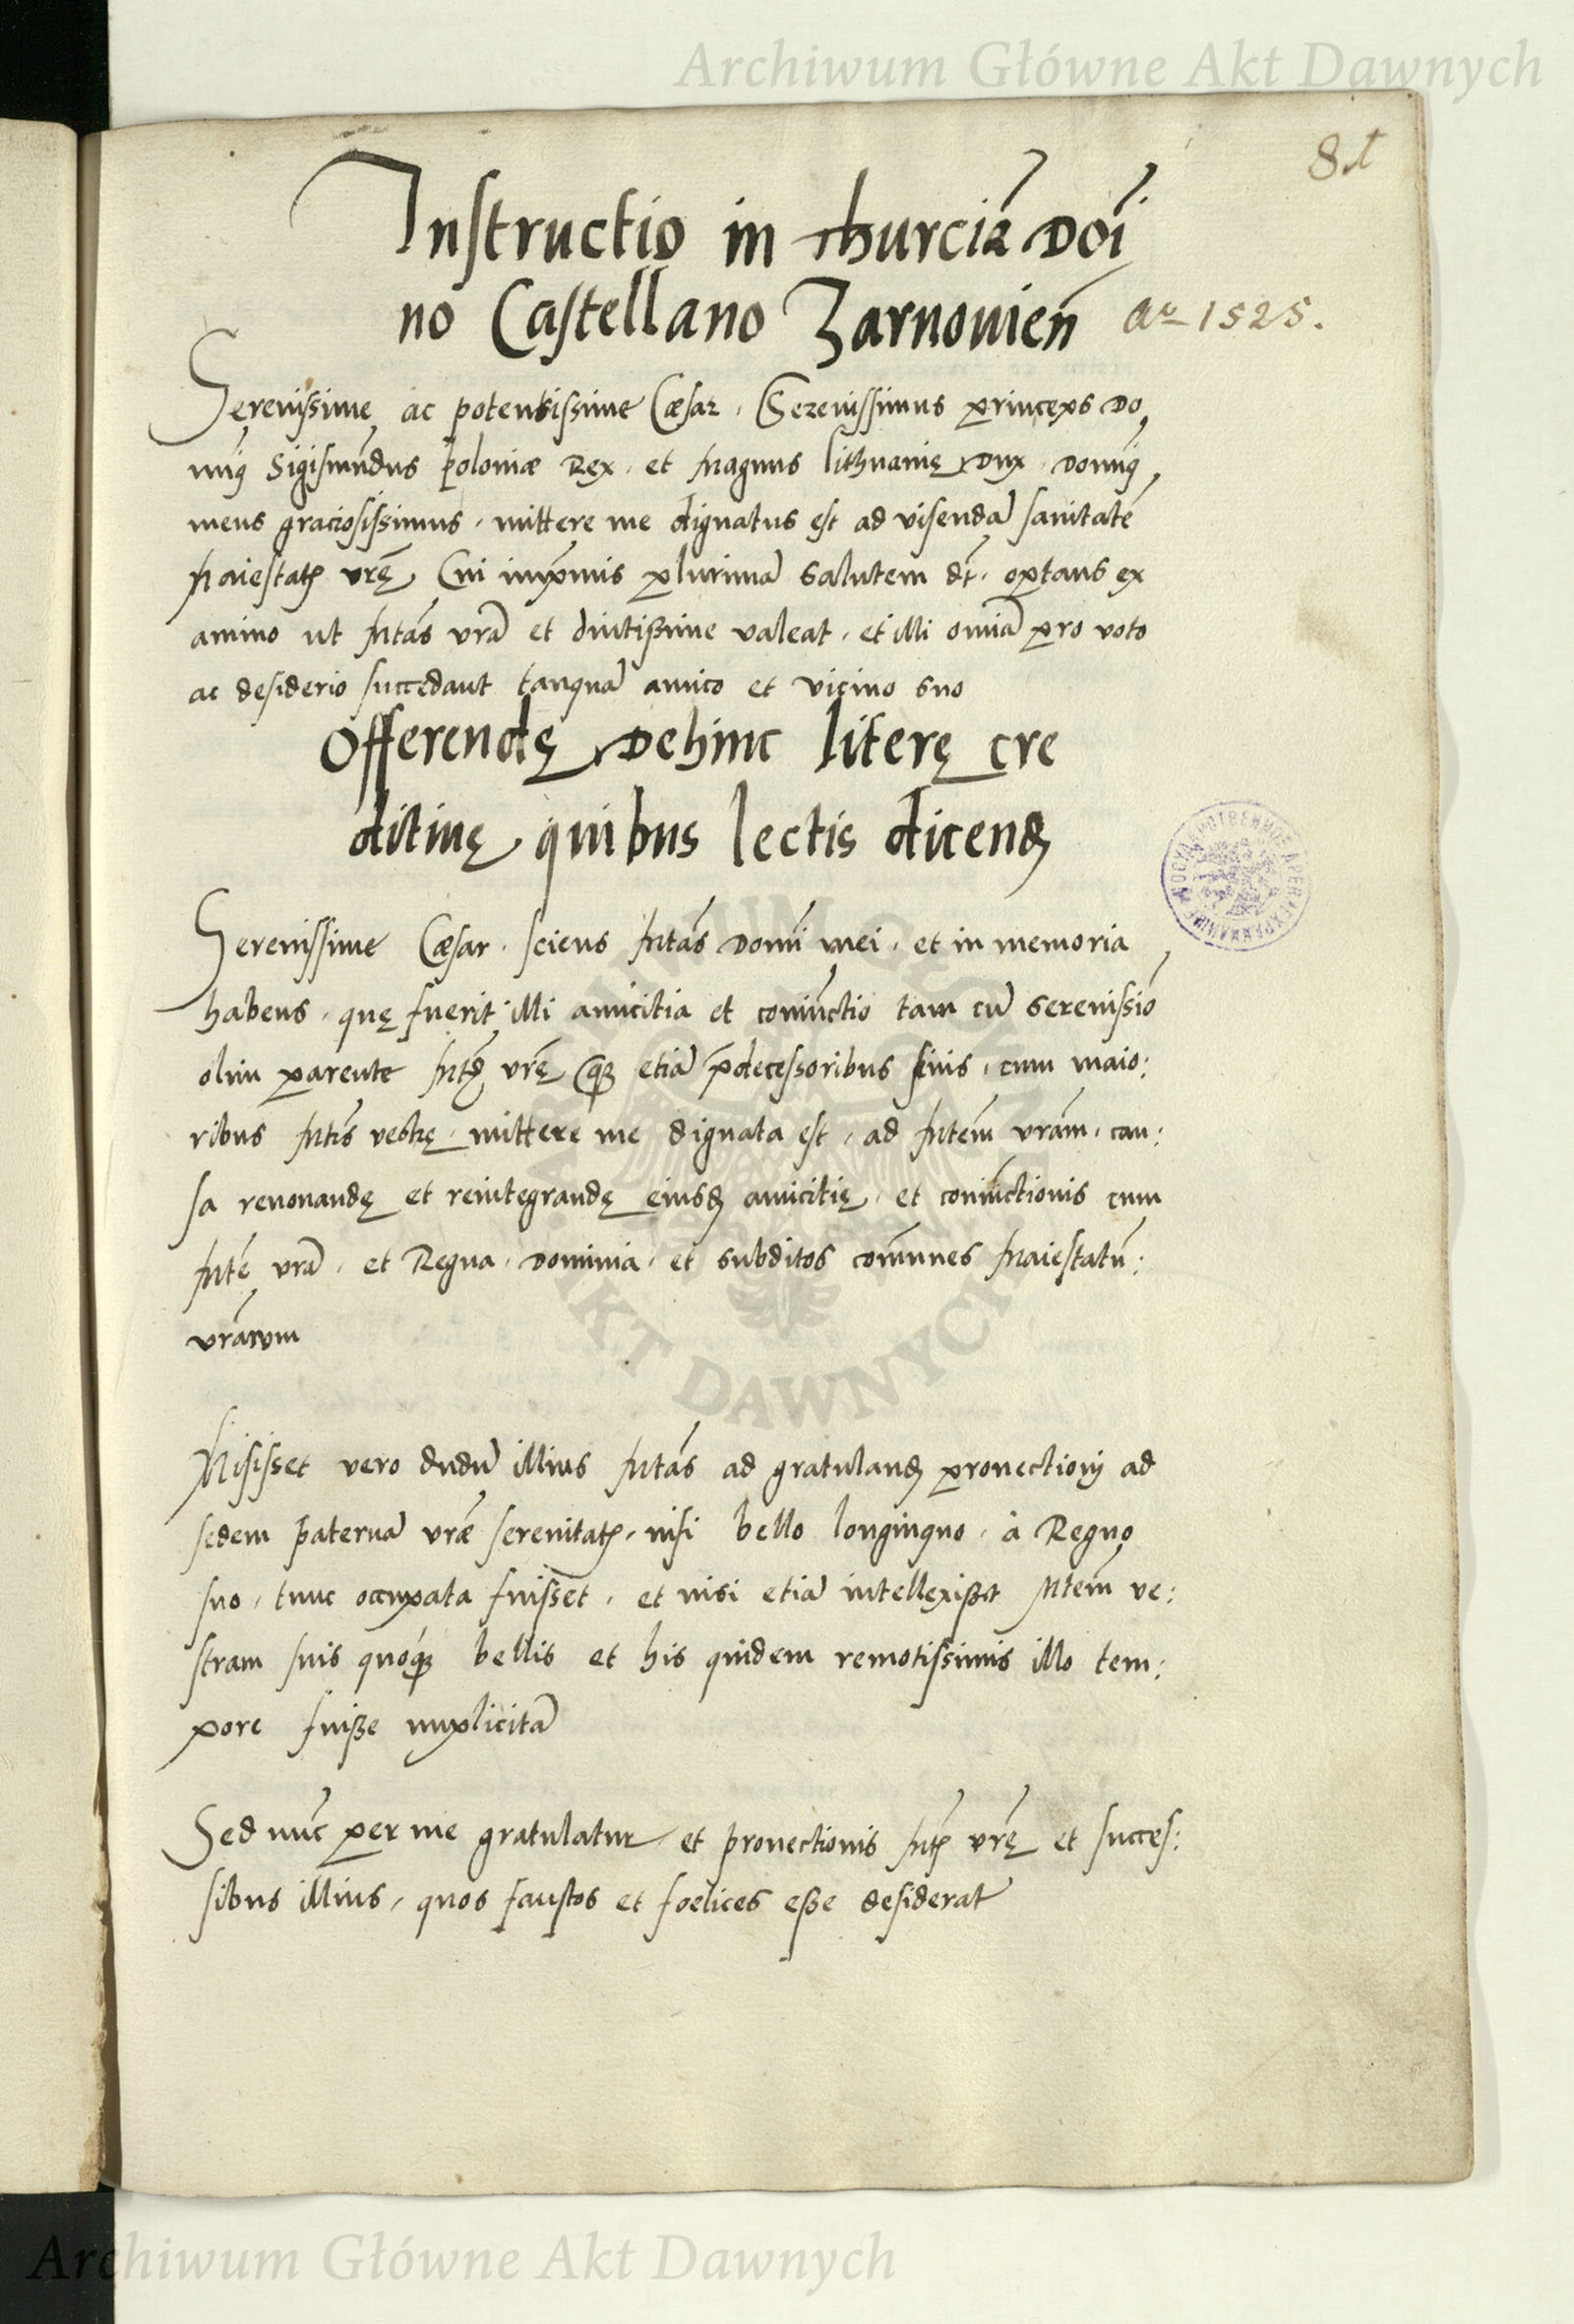 Archiwum Główne Akt Dawnych
Instructio in thurciã Domi
no Castellano Zarnouieñ Ao 1525.
Serenissime ac potentissime Cæsar. Serenissimus princeps Do
Sigismũdus poloniæ Rex. et Magnus lithuanię Dux.
meus graciosissimus. mittere me dignatus est ad visendã sanitatẽ
vrẽ. Cui plurimã salutem optans ex
animo ut Mtas vrã et diutissime valeat. et illi omiã pro voto
ac desiderio succedant tanquã amico et vicino suo
Offerendę Dehinc literę cre
ditiuę quibus lectis
Serenissime Cæsar. sciens Mtas Domi mei. et in memoria
habens. quę fuerit illi amicitia et coniũctio tam cũ serenissio
olim parente vrẽ etiã p̃decessoribus suis. cum maio:
ribus Mtis vestrę. mittere me dignata est. ad Mtem vram. cau:
sa renouandę et reintegrandę amicitię. et coniũctionis cum
Mte vrã. et Regna. Dominia. et subditos com̃unes Maiestatũ:
vrarum
Misisset vero dudũ illius Mtas ad prouectioni ad
sedem paternã vræ nisi bello longinquo. à Regno
suo. tunc occupata fuisset. et nisi etiã intellexisset Mtem ve:
stram suis bellis et his quidem remotissimis illo tem:
pore fuisse implicitã
Sed nũc per me gratulatur et prouectionis vrę et succes:
sibus illius. quos faustos et foelices esse desiderat
Archiwum Główne Akt Dawnych